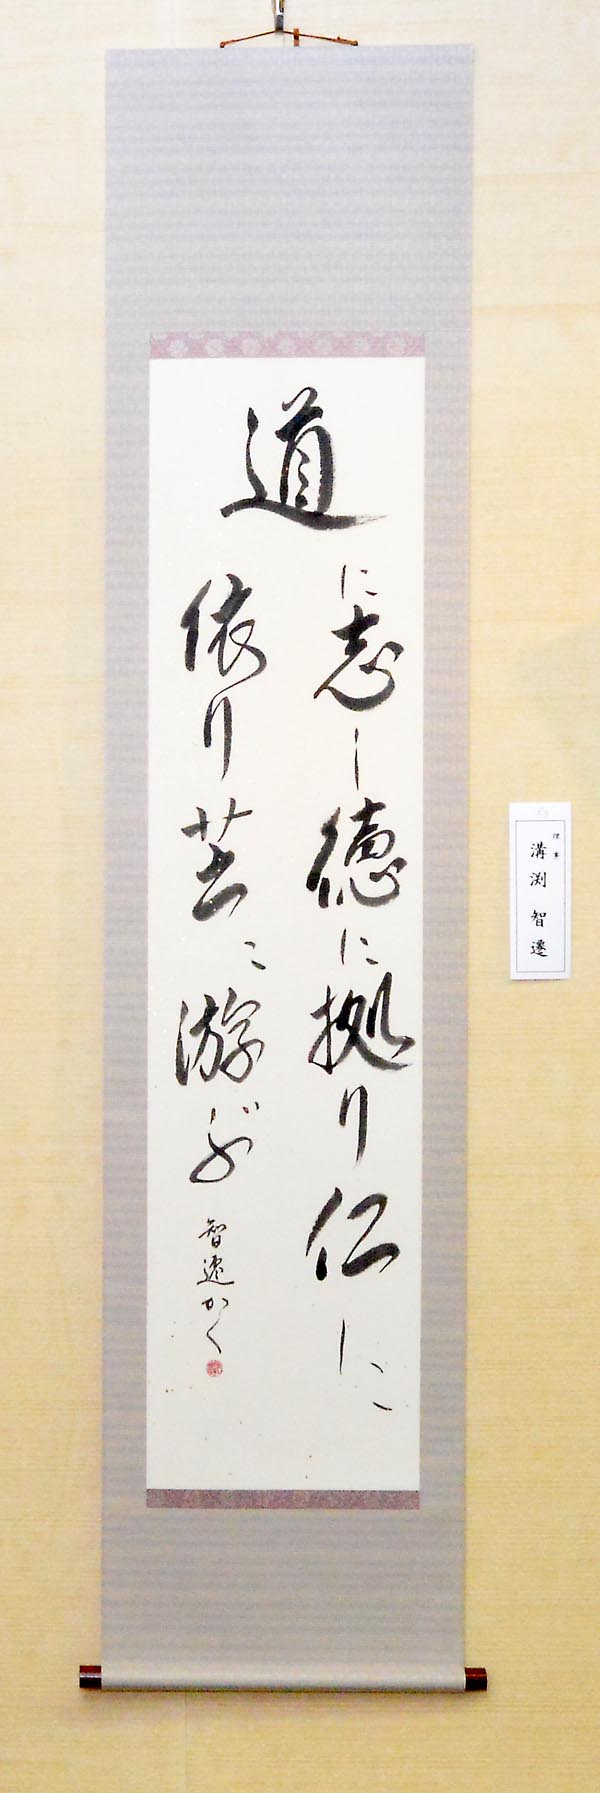 道
に志し徳に拠り仁に
依り芸に游ぶ
智遷かく
理事
溝渕 智遷